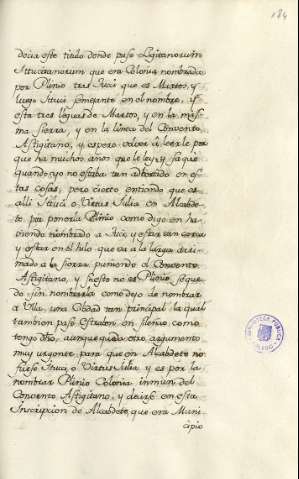 184
decia este titulo donde puso Legitanorum
Ituccitanorum que era Colonia nombrada
por Plinio tres Tucci que es Martos, y
luego Itucci semejante en el nombre, y
esta tres leguas de Martos, y en la mis-
ma sierra, y en la linea del Convento
Astigitano, y espero volver á leerle por
que ha muchos años que le ley y saque
quando yo no estaba tan advertido en es-
tas cosas; pero cierto entiendo que es
alli Itucci o Virtus Iulia en Alcabde-
te, por ponerla Plinio como digo en ha-
viendo nombrado a Tucci, y estar tan cerca
y estar en el hilo que va a la larga arri-
mado a la sierra, poniendo el Convento
Astigitano, y si esto no es Plinio se que-
do sin nombrarla como dejo de nombrar
a Ulia, una Ciudad tan principal la qual
tambien paso Estrabon en silencio como
tengo dho, aunque queda otro argumento
muy urgente para que en Alcabdete no
fuese Itucci, o Virtus Iulia y es por la
nombrar Plinio Colonia inmun del
Convento Astigitano, y decirse en esta
Inscripcion de Alcabdete, que era Muni
cipio
BIBLIOTECA PUBLICA
TOLEDO